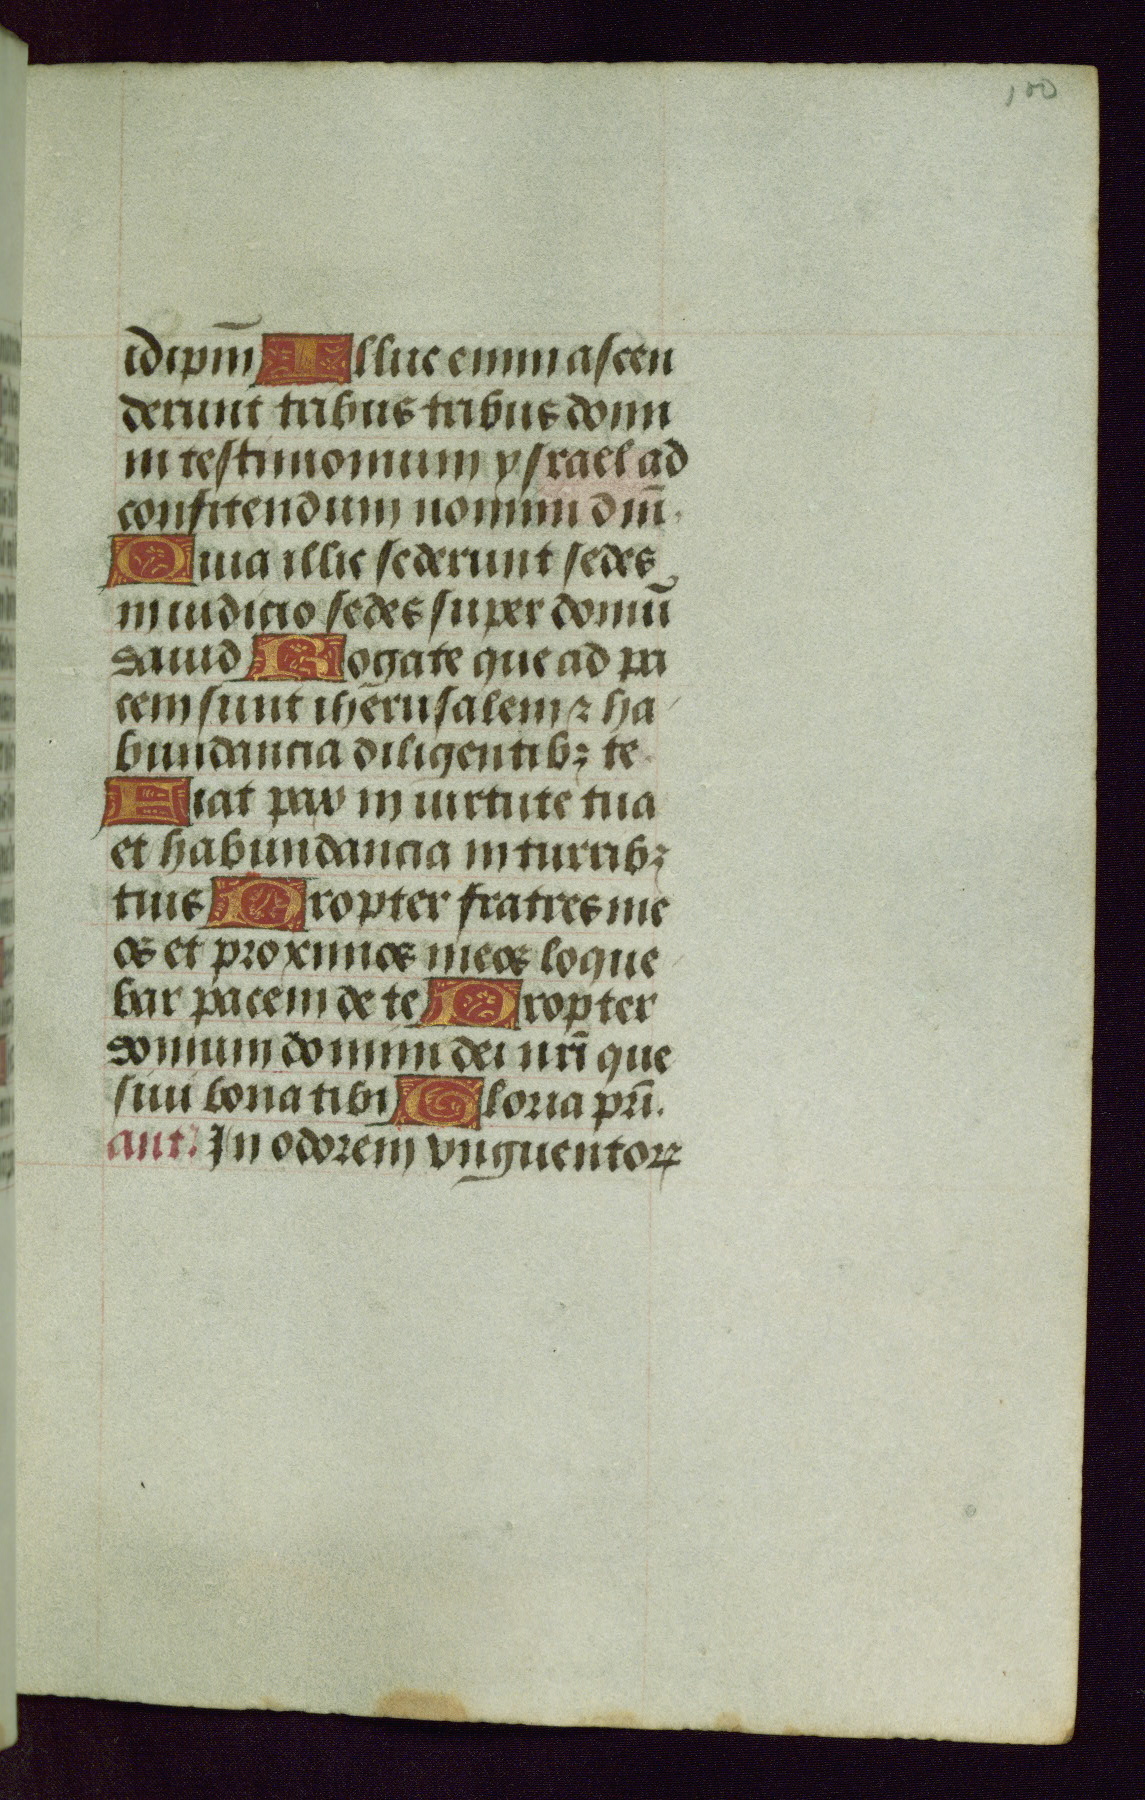 100
idip̄m Illuc enim ascen
derunt tribus tribus domi
in testimonium ysrael ad
confitendum nomini dm̄.
Quia illic sederunt sedes
in iudicio sedes super domū
dauid Rogate que ad pa
cem sunt ihērusalem ⁊ ha
bundancia diligentibꝫ te.
Fiat pax in uirtute tua
et habundancia in turribꝫ
tuis Propter fratres me
os et proximos meos loque
bar pacem de te Propter
domum domini dei nrī que
siui bona tibi Gloria prī.
ant. In odorem vnguentoꝝ